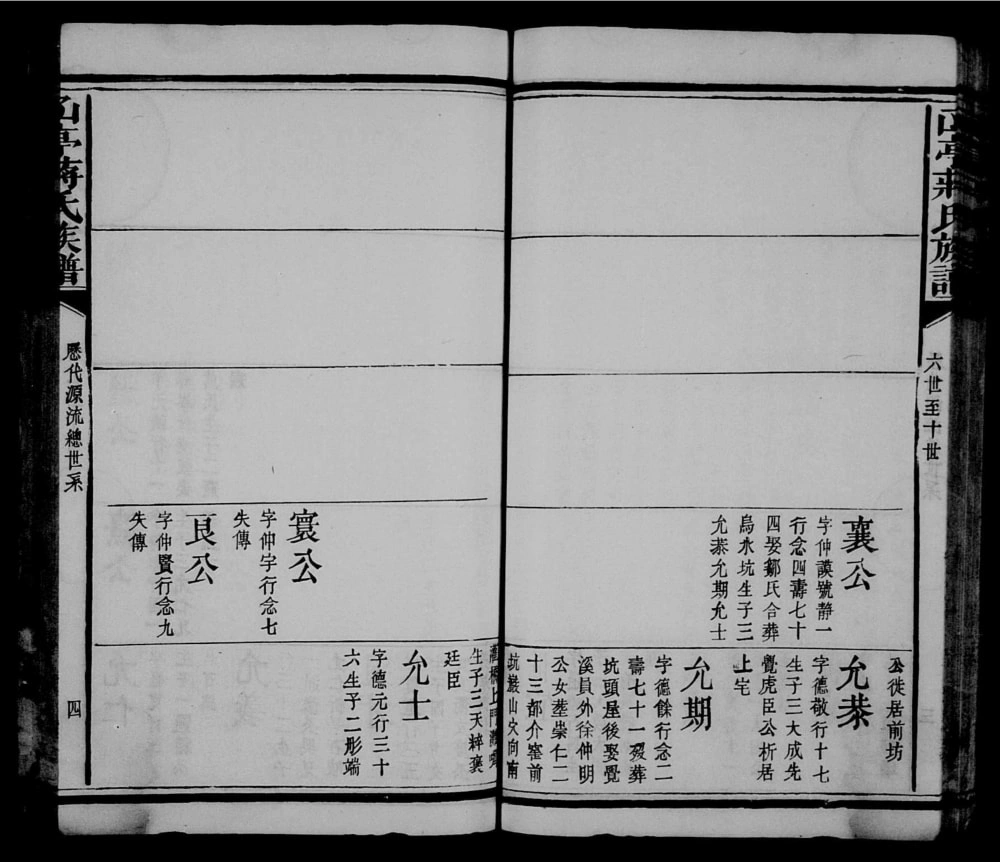 亭蔣氏族譜
六世至十世
襄公
字仲謨號靜一
行念四壽七十
四娶鄒氏合葬
烏水坑生子三
允恭允期允士
公徙居前坊
允恭
字德敬行十七
生子三大成先
覺虎臣公析居
上宅
允期
字德餘行念二
壽七十一歿葬
坑頭屋後娶覺
溪員外徐仲明
公女塟崇仁二
十三都介窒前
坑巖山穴向南
寰公
字仲字行念七
失傳
艮公
字仲賢行念九
失傳
生子三天粹襃
廷臣
允士
字德元行三十
六生子二彤端
亭蔣氏族譜
歷代源流總世系
四